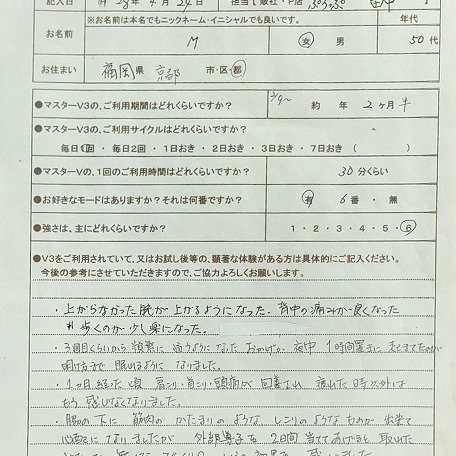 記入日 H 28年 4月 24日 担当(販社・P店
※お名前は本名でもニックネーム・イニシャルでも良いです。 年代
お名前 M 女 男 50代
お住まい 福岡県 京都 市・区・郡
●マスターV3の、ご利用期間はどれくらいですか? 2/9〜 約 年 2ヶ月半
●マスターV3の、ご利用サイクルはどれくらいですか?
毎日1回・毎日2回・1日おき・2日おき・3日おき・7日おき( )
●マスターVの、1回のご利用時間はどれくらいですか? 30分くらい
●お好きなモードはありますか?それは何番ですか? 有 6番・無
●強さは、主にどれくらいですか? 1・2・3・4・5・6
●V3をご利用されていて、又はお試し後等の、顕著な体験がある方は具体的にご記入ください。
今後の参考にさせていただきますので、ご協力よろしくお願いします。
・上がらなかった腕が上がるようになった。背中の痛みが良くなった
歩くのが少し楽になった。
・3週目くらいから頻繁に 通うようになった おかげか 夜中 1時間置きに 起きてたのが
明けまで 眠れるようになりました。
・1ヶ月経った頃 肩こり・首こり・頭痛が 改善され 疲れた時以外は
もう 感じなくなりました。
・脇の下に 筋肉の かたまりのような しこりのようなものが 出来て
心配になりましたが 外部導子を 2日間 当ててあげると 取れた